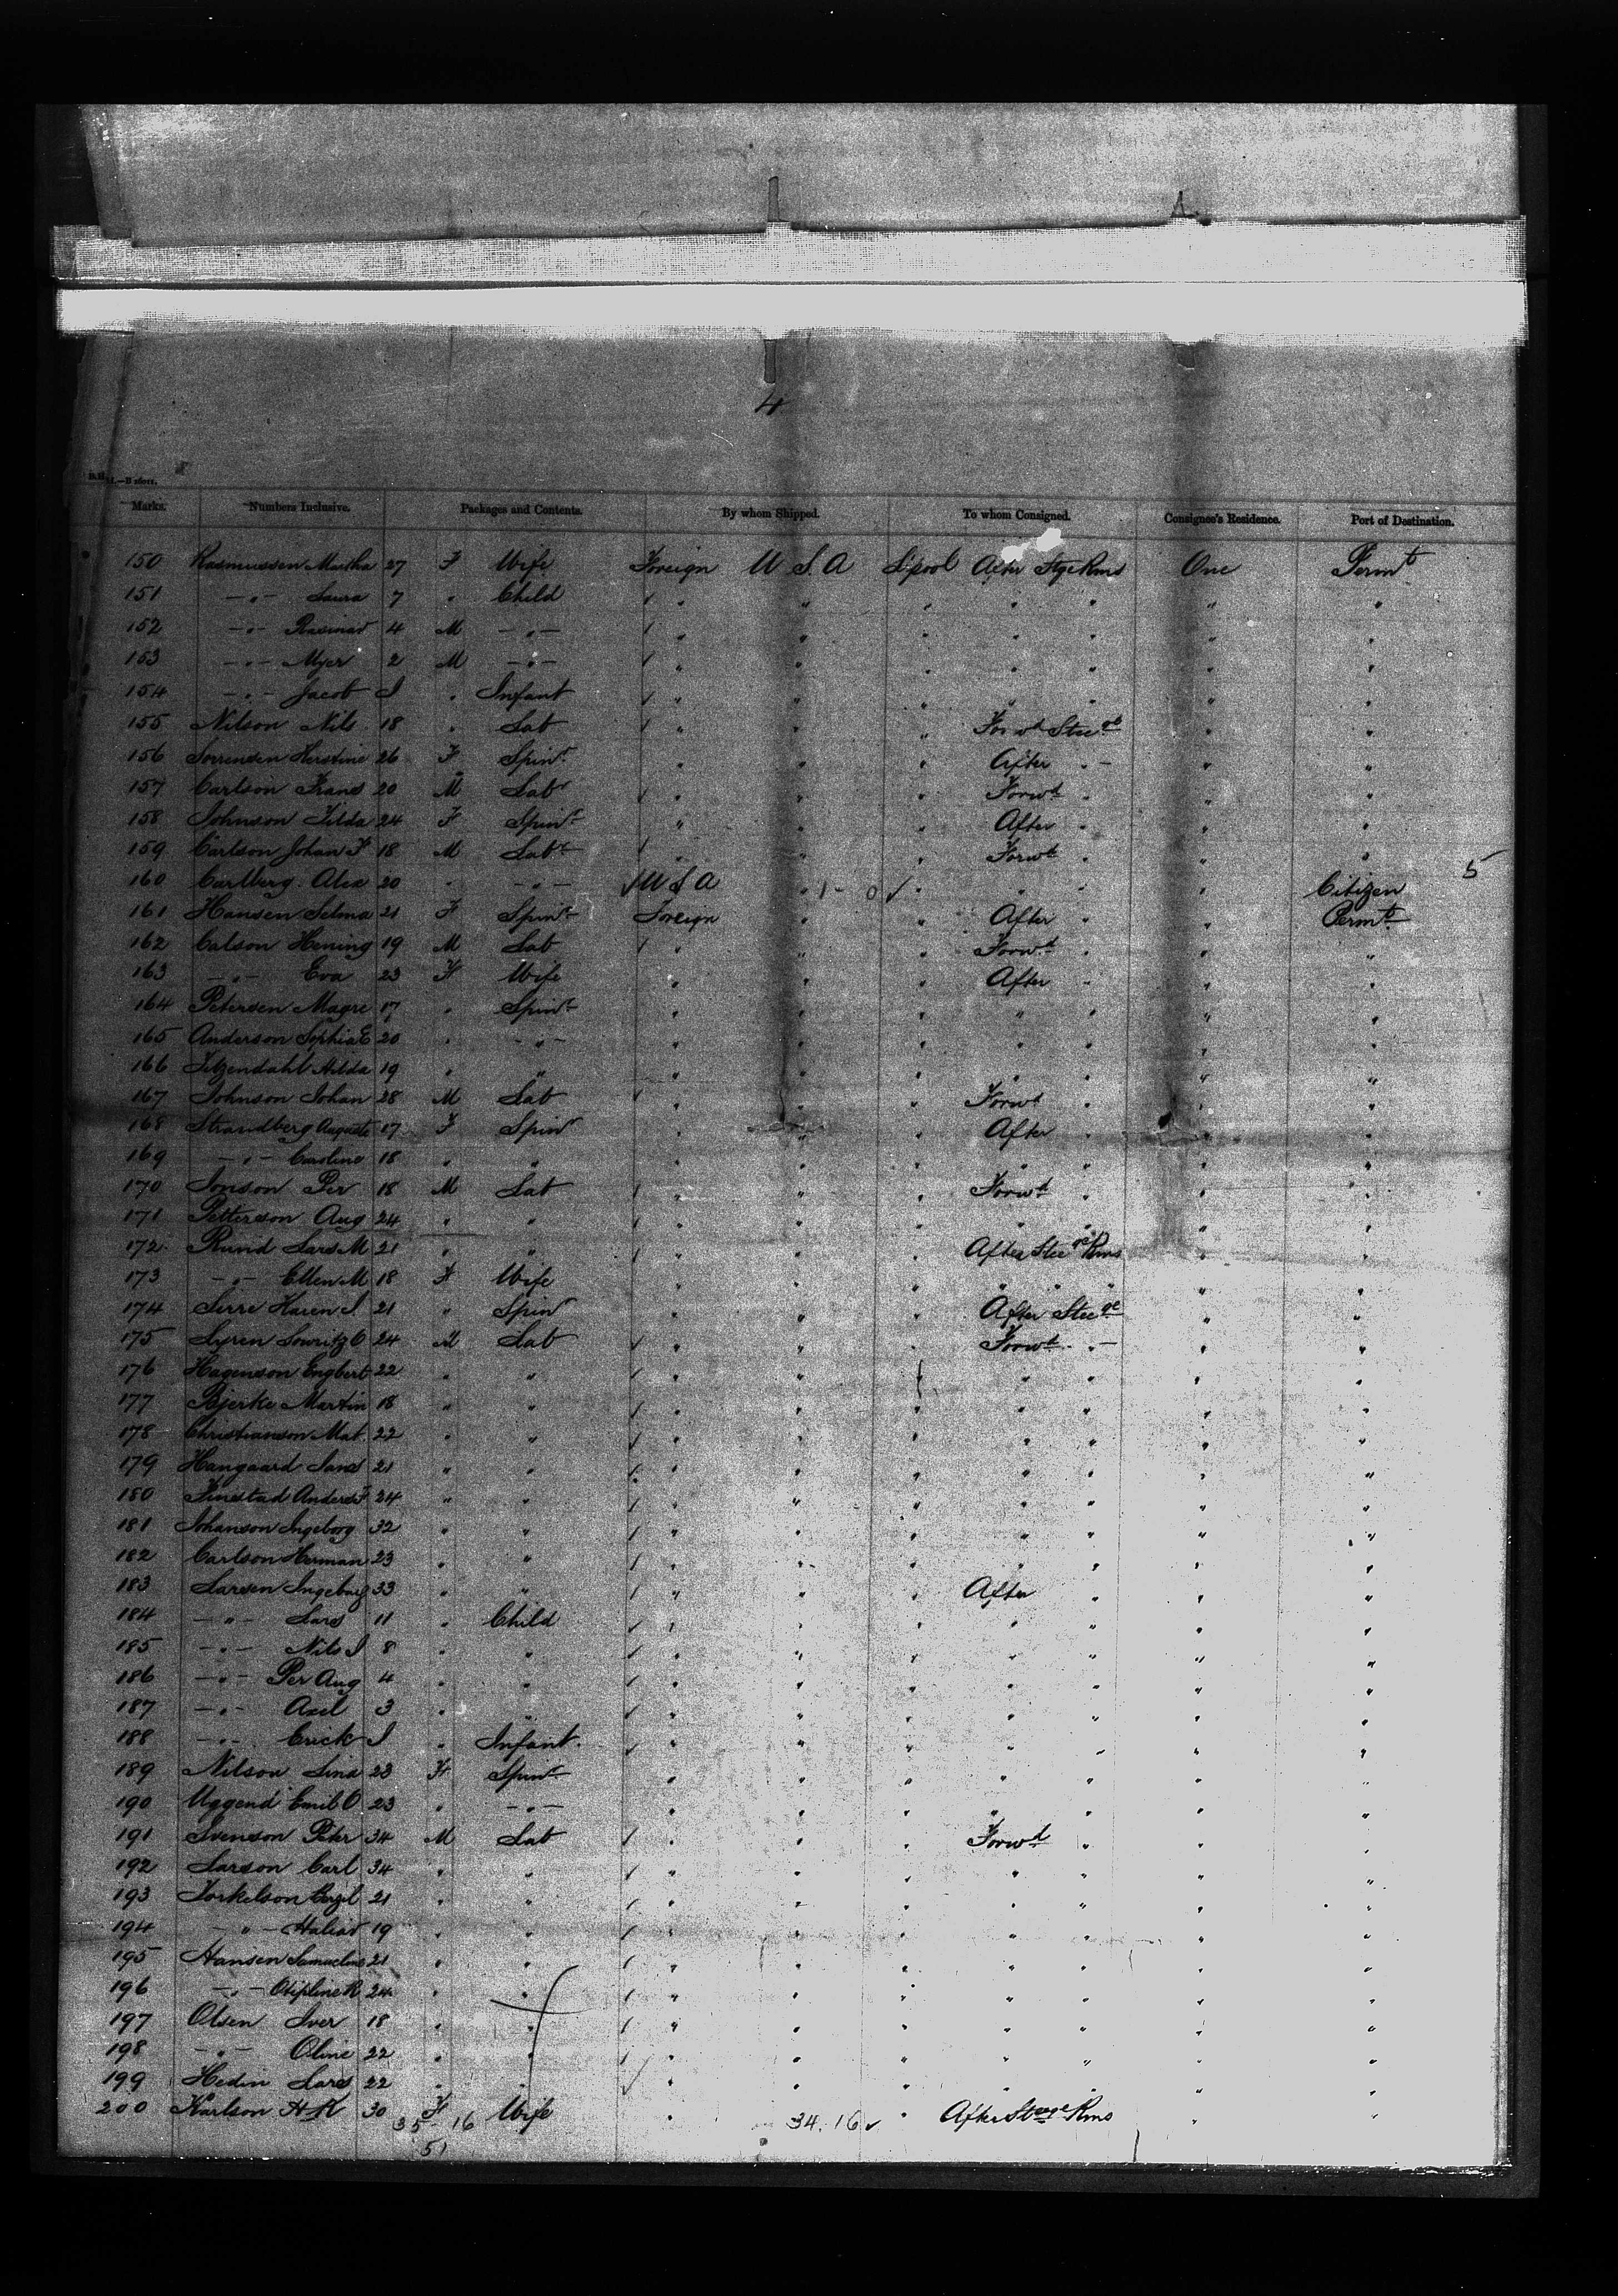 4
Marks. Numbers Inclusive. Packages and Contents. By whom Shipped. To whom Consigned. Consignee's Residence. Port of Destination.
150 Rasmussen Martha 27 F Wife Foreign U S A L'pool After Stge Rms One Permt
151 -"- Laura 7 " Child " " " " " " "
152 -"- Rasmar 4 M -"- " " " " " " "
153 -"- Myer 2 M -"- " " " " " " "
154 -"- Jacob I " Infant " " " " " " "
155 Nilson Nils 18 " Lab " " " Forwd Steege " "
156 Sorrensen Kerstine 26 F Spinr " " " After " - " "
157 Carlson Frans 20 M Labr " " " Forwd " " "
158 Johnson Tilda 24 F Spinr " " " After " " "
159 Carlson Johan F 18 M Labr " " " Forwd " " "
160 Carlberg Alex 20 " -"- U S A " 1 - 0 " " " " Citizen 5
161 Hansen Selma 21 F Spinr Foreign " " After " " Permt
162 Calson Hening 19 M Lab " " " Forwd " " "
163 -"- Eva 23 F Wife " " " After " " "
164 Petersen Magre 17 " Spinr " " " " " " "
165 Anderson Sophia E 20 " -"- " " " " " " "
166 Hilda 19 " " " " " " " " "
167 Johnson Johan 28 M Lab " " " Forwd " " "
168 Strandberg Augusta 17 F Spinr " " " After " " "
169 -"- Caroline 18 " " " " " " " " "
170 Jonson Per 18 M Lab " " " Forwd " " "
171 Petterson Aug 24 " " " " " " " " "
172 Rund Lars M 21 " " " " " After Steege Rms " "
173 -"- Ellen M 18 F Wife " " " " " " " "
174 21 " Spinr " " " After Steege " "
175 Lyren Louritz O 24 M Lab " " " Forwd " - " "
176 Hagenson Engbert 22 " " " " " " " " "
177 Bjerke Martin 18 " " " " " " " " "
178 Christianson Mat 22 " " " " " " " " "
179 Hangaard 21 " " " " " " " " "
180 Finstad Anders F 24 " " " " " " " " "
181 Johanson Ingeborg 32 " " " " " " " " "
182 Carlson Herman 23 " " " " " " " " "
183 Larsen Ingeborg 33 " " " " " After " " "
184 -"- Lars 11 " Child " " " " " " "
185 -"- Nils I 8 " " " " " " " " "
186 -"- Per Aug 4 " " " " " " " " "
187 -"- Axel 3 " " " " " " " " "
188 -"- Erick I " Infant. " " " " " " "
189 Nilson Lina 23 F Spinr " " " " " " "
190 Uggend Emil O 23 " -"- " " " " " " "
191 Svenson Peter 34 M Lab " " " Forwd " " "
192 Larson Carl 34 " " " " " " " " "
193 Torkelson 21 " " " " " " " " "
194 -"- 19 " " " " " " " " "
195 Hansen Samueline 21 " " " " " " " " "
196 -"- 24 " " " " " " " " "
197 Olsen Iver 18 " " " " " " " " "
198 -"- Oline 22 " " " " " " " " "
199 Hedin Lars 22 " " " " " " " " "
200 Karlson H K 30 F Wife " 34.16 " After Steege Rms " "
35 16
51